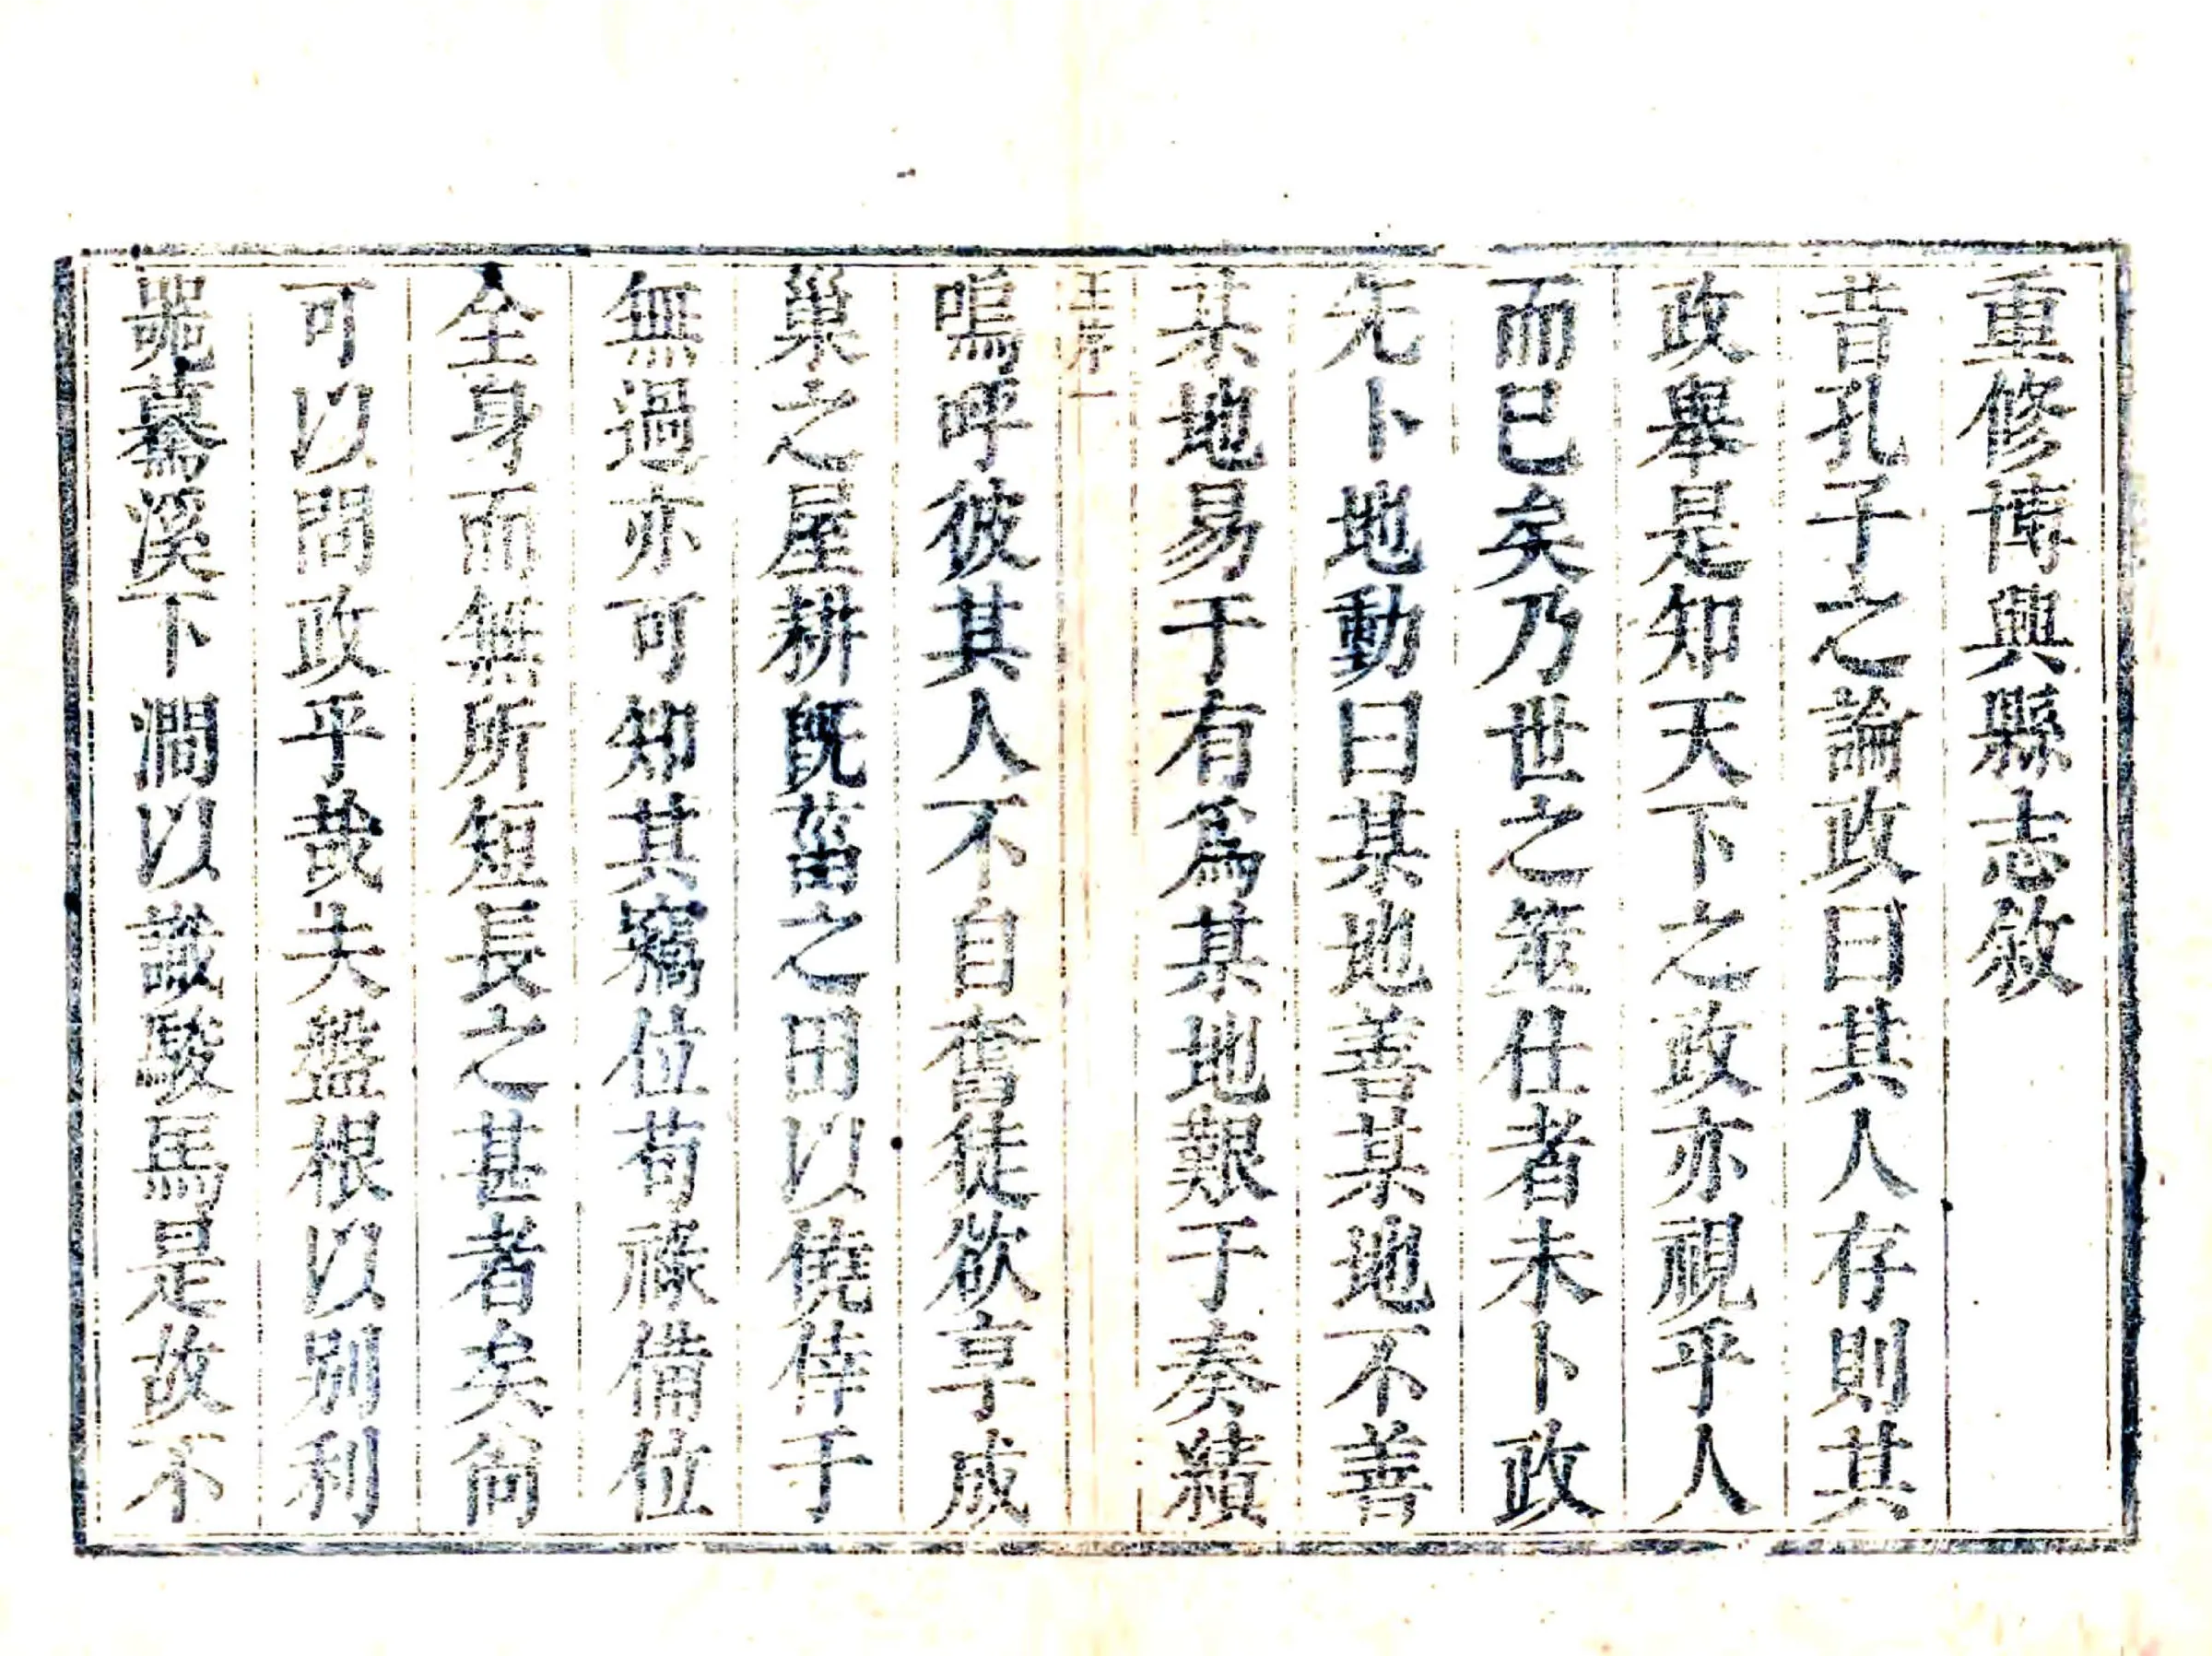 重修博興縣志敘
昔孔子之論政曰其人存則其
政舉是知天下之政亦視乎人
而已矣乃世之筮仕者未卜政
先卜地動曰某地善某地不善
某地易于有爲某地艱于奏績
王序一
嗚呼彼其人不自奮徒欲享成
巢之屋耕既菑之田以僥倖于
無過亦可知其竊位苟祿備位
全身而無所短長之甚者矣尙
可以問政乎哉夫盤根以別利
器驀溪下澗以識駿馬是故不